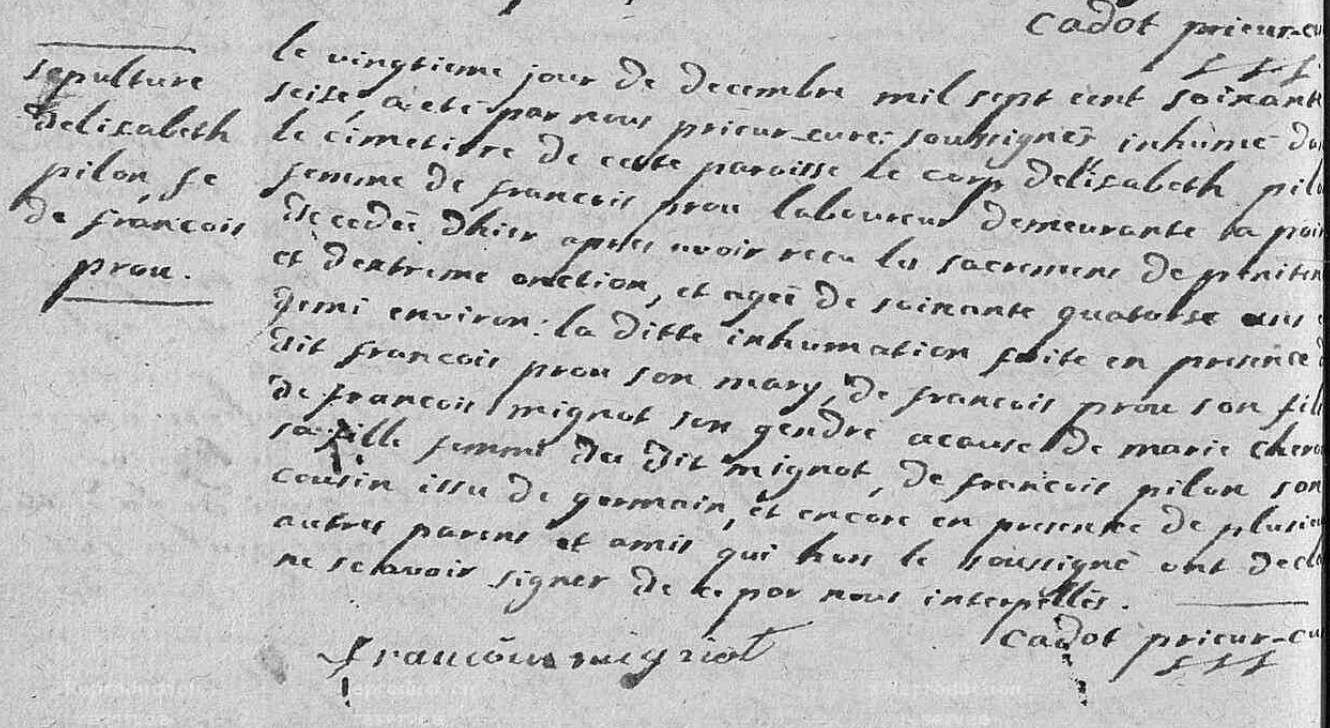 cadot prieur-cu
sepulture
delisabeth
pilon, fe
de francois
prou.
le vingtieme jour de decembre mil sept cent soixante
seise, a eté par nous prieur-curé soussignés inhumé da
le cimetiere de cette paroisse le corp delisabeth pilo
femme de francois prou laboureur demeurante la poin
decedée dhier apres avoir recu les sacremens de peniten
et dextreme onction, et agée de soixante quatorse ans
demi environ: la ditte inhumation faite en presence d
dit francois prou son mary, de francois prou son fils
de francois mignot son gendre acause de marie chero
sa fille femme du dit mignot, de francois pilon son
cousin issu de germain, et encore en presence de plusieu
autres parens et amis qui hors le soussigné ont decla
ne scavoir signer de ce par nous interpellés.
cadot prieur-cu
francois mignot
Reproduction
reservee
Reproduction
reservee
Reproduction
reservee